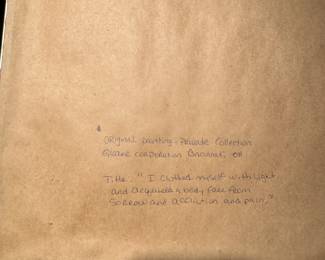 original painting - Private Collection
corporation Cincinnati, OH
Title - "I Clothed myself with Light
and acquired a body free from
Sorrow and affliction and pain."